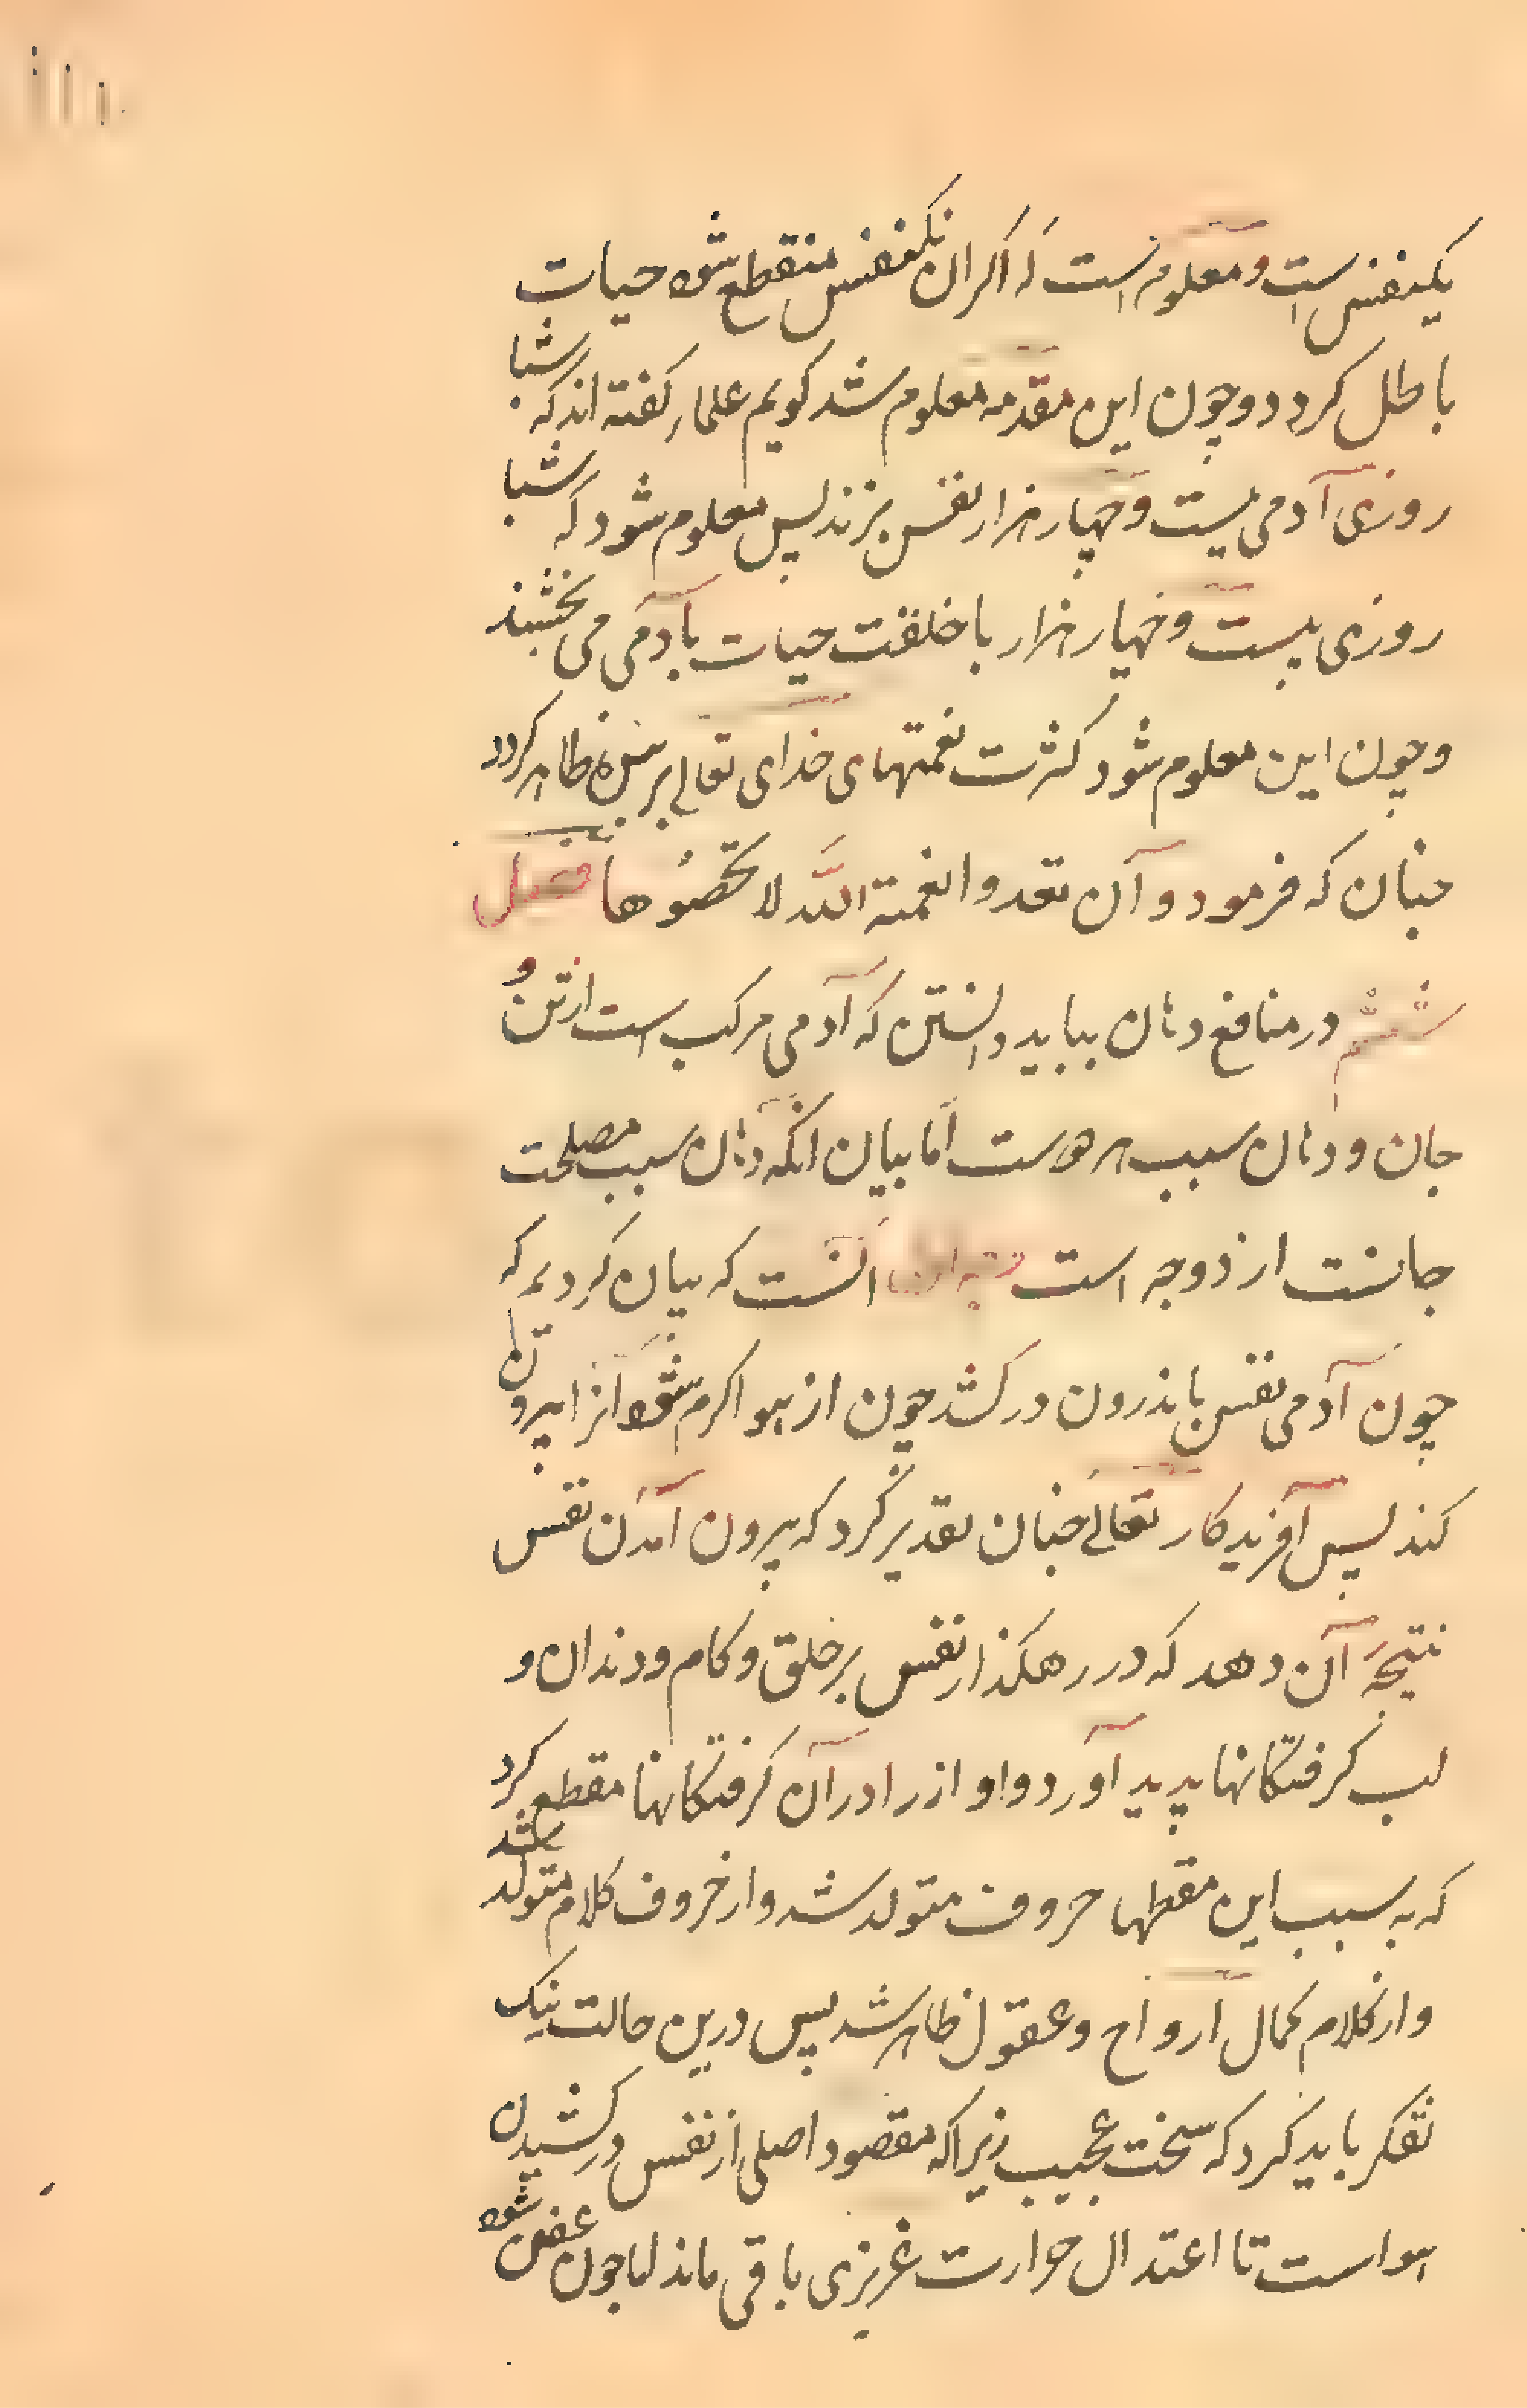 یکنفس است و معلوم است که اکر آن یکنفس منقطع شود حیات
باطل کردد و چون این مقدمه معلوم شد کویم علما کفته اند که شبا
روزی آدمی بیست و چهار هزار نفس بزند پس معلوم شود که شبا
روزی بیست و چهار هزار با خلقت حیات بآدمی می بخشند
و چون این معلوم شود کثرت نعمتهای خدای تعالی بر بنده ظاهر کردد
چنان که فرمود و آن تعدوا نعمة الله لا تحصوها فصل
ششم در منافع دهان بباید دانستن که آدمی مرکب است از تن و
جان و دهان سبب هر دوست اما بیان آنکه دهان سبب مصلحت
جانست از دو وجه است وجه اول آنست که بیان کردیم که
چون آدمی نفس باندرون در کشد چون از هوا کرم شود آنرا بیرون
کند پس آفریدکار تعالی چنان تقدیر کرد که بیرون آمدن نفس
نتیجهٔ آن دهد که در رهکذار نفس بر حلق و کام و دندان و
لب کرفتکانها پدید آورد و اواز را در آن کرفتکانها مقطع کرد
که به سبب این مقطها حروف متولد شد و از حروف کلام متولد شد
و از کلام کمال ارواح و عقول ظاهر شد پس درین حالت نیک
تفکر باید کرد که سخت عجیب زیرا که مقصود اصلی از نفس در کشیدن
هواست تا اعتدال حرارت غریزی باقی ماند اما چون عفن شود